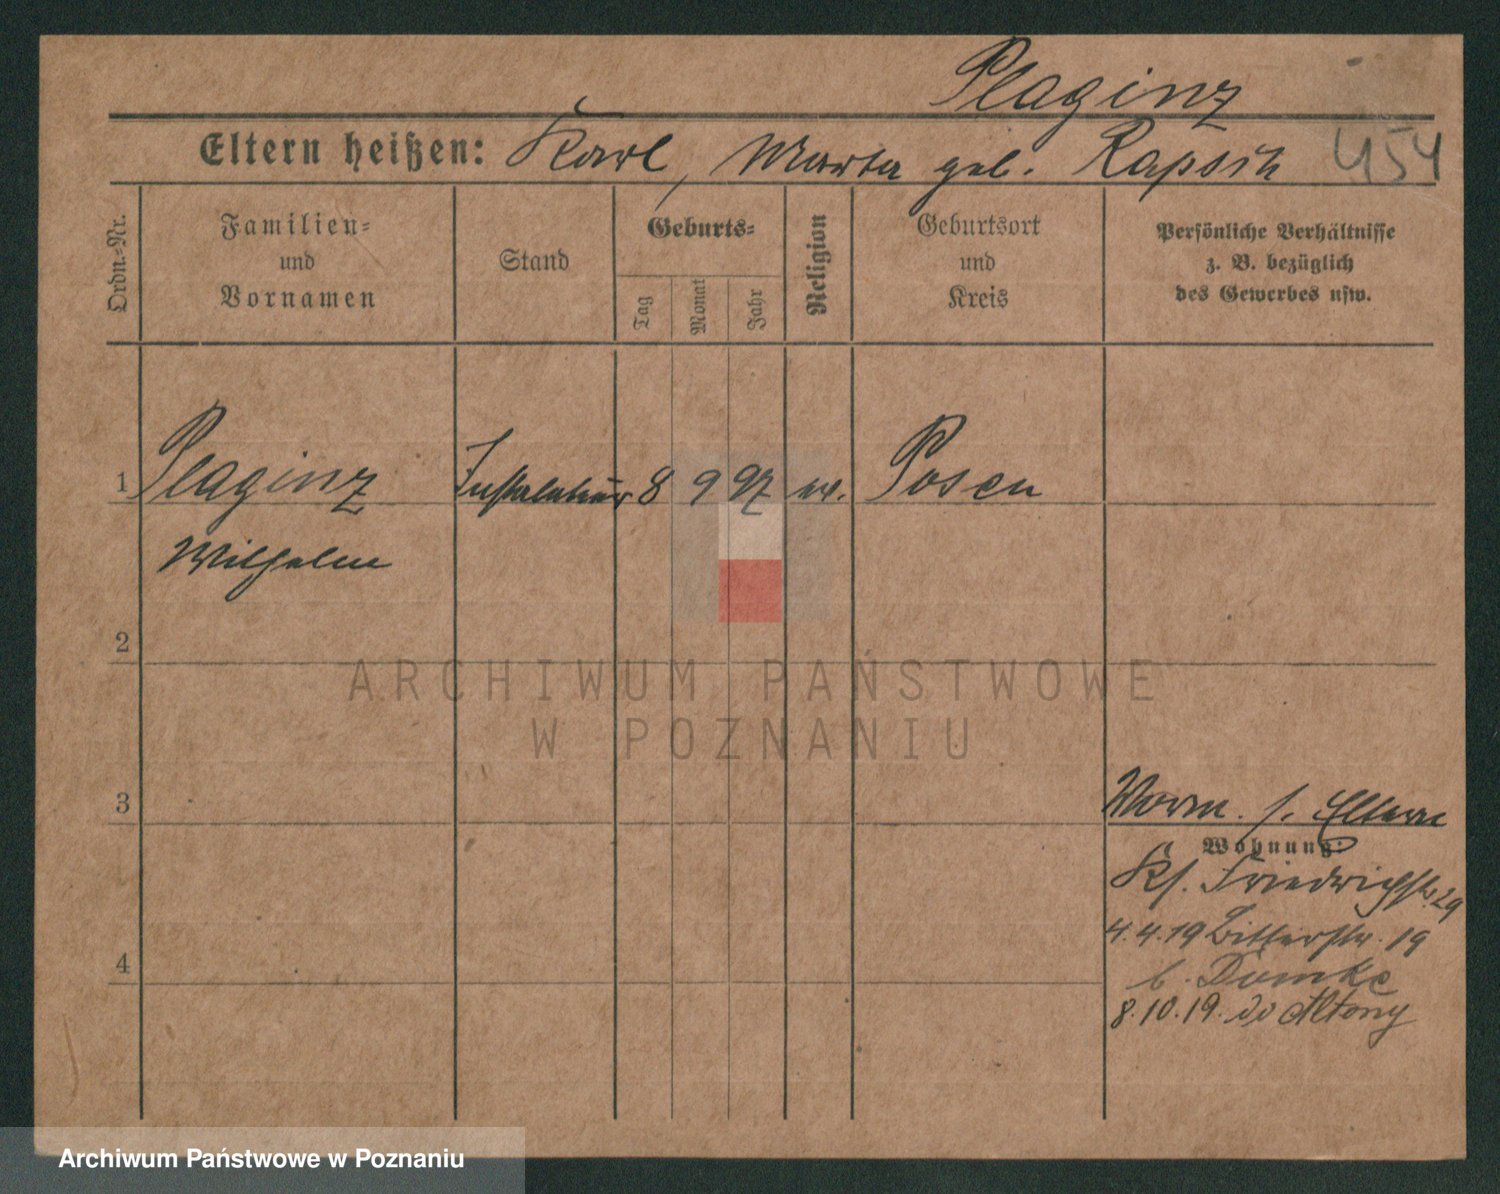 Plaginz
Eltern heißen: Karl, Marta geb. Rapsch 454
Ordn.-Nr.
Familien-
und
Vornamen
Stand
Geburts-
Tag
Monat
Jahr
Religion
Geburtsort
und
Kreis
Persönliche Verhältnisse
z. B. bezüglich
des Gewerbes usw.
1 Plaginz Installateur 8 9 97 ev. Posen
Wilhelm
2
ARCHIWUM PAŃSTWOWE
W POZNANIU
3
Vorm. s. Eltern
Wohnung:
Friedrichstr. 29
4
4.4.19 19
b. Domke
8.10.19.
Archiwum Państwowe w Poznaniu